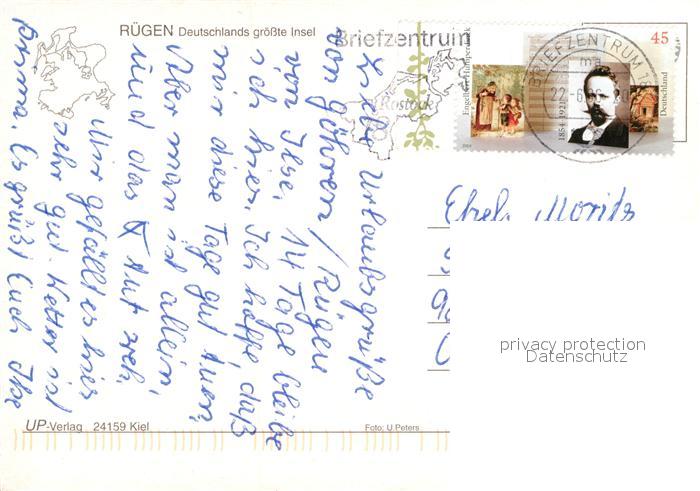 RÜGEN Deutschlands größte Insel
Briefzentrum
Rostock
Engelbert Humperdinck
1854-1921
45
Deutschland
2004
BRIEFZENTRUM
ma
Liebe Urlaubsgrüße
von Göhren / Rügen
von Ilse. 14 Tage bleibe
ich hier. Ich hoffe, daß
mir diese Tage gut tuen,
Aber man ist allein,
und das tut weh,
Mir gefällt es hier
sehr gut. Wetter ist
prima. Es grüßt Euch Ilse
Moritz
privacy protection
Datenschutz
UP-Verlag 24159 Kiel
Foto: U.Peters